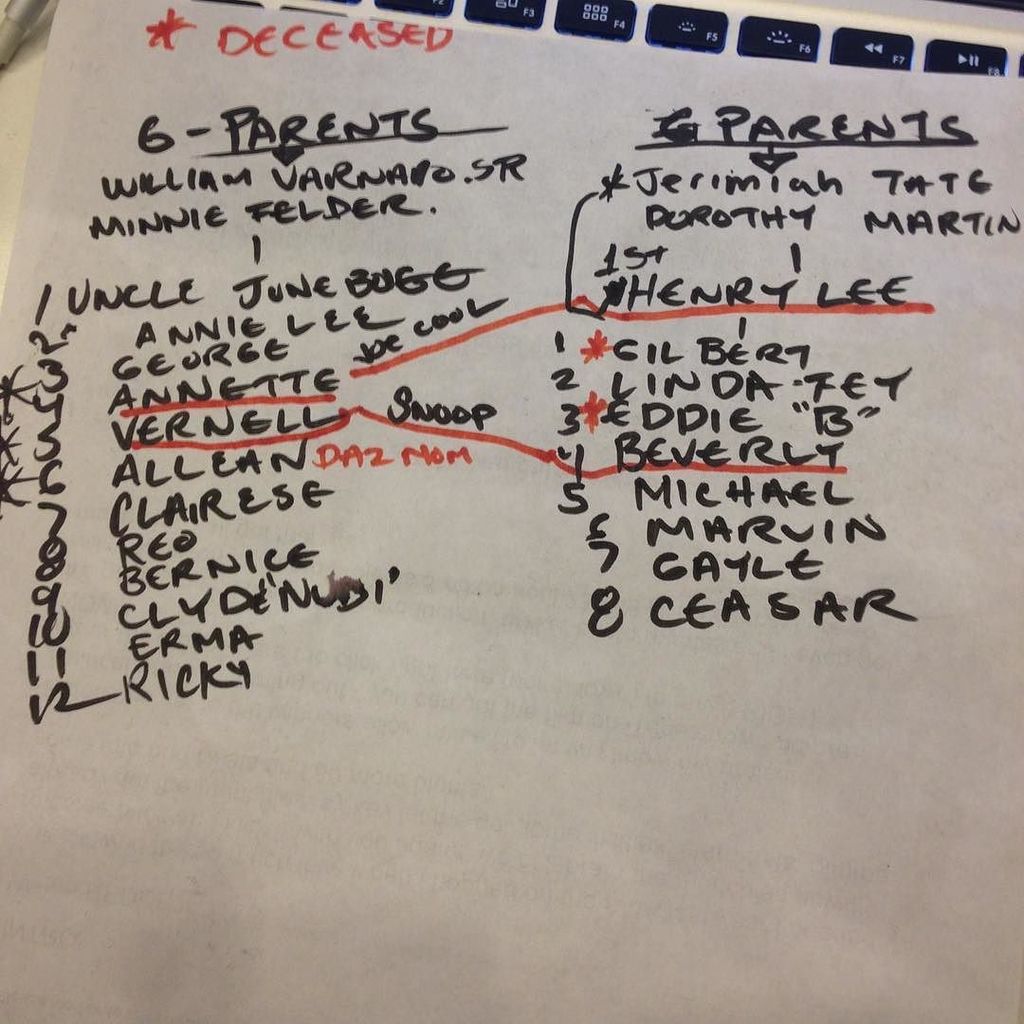 F2
F3
F4
F5
F6
F7
F8
* DECEASED
6-PARENTS
WILLIAM VARNADO.SR
MINNIE FELDER.
1 UNCLE JUNEBUGG
2 ANNIE LEE
3 GEORGE
4 ANNETTE
5 VERNELL
6 ALLEAN DAZ MOM
7 CLAIRESE
8 REO
9 BERNICE
10 CLYDE "NUDI"
11 ERMA
12 RICKY
JOE COOL
SNOOP
G PARENTS
*Jerimiah TATE
DOROTHY MARTIN
1ST
HENRY LEE
1 *GILBERT
2 LINDA-FEY
3 *EDDIE "B"
4 BEVERLY
5 MICHAEL
6 MARVIN
7 GAYLE
8 CEASAR